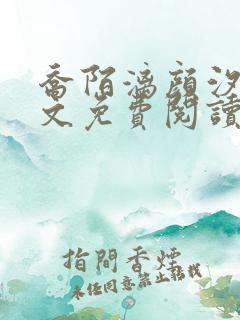 喬陌漓顏汐
文免費閱讀
指間香煙
未经同意禁止转载